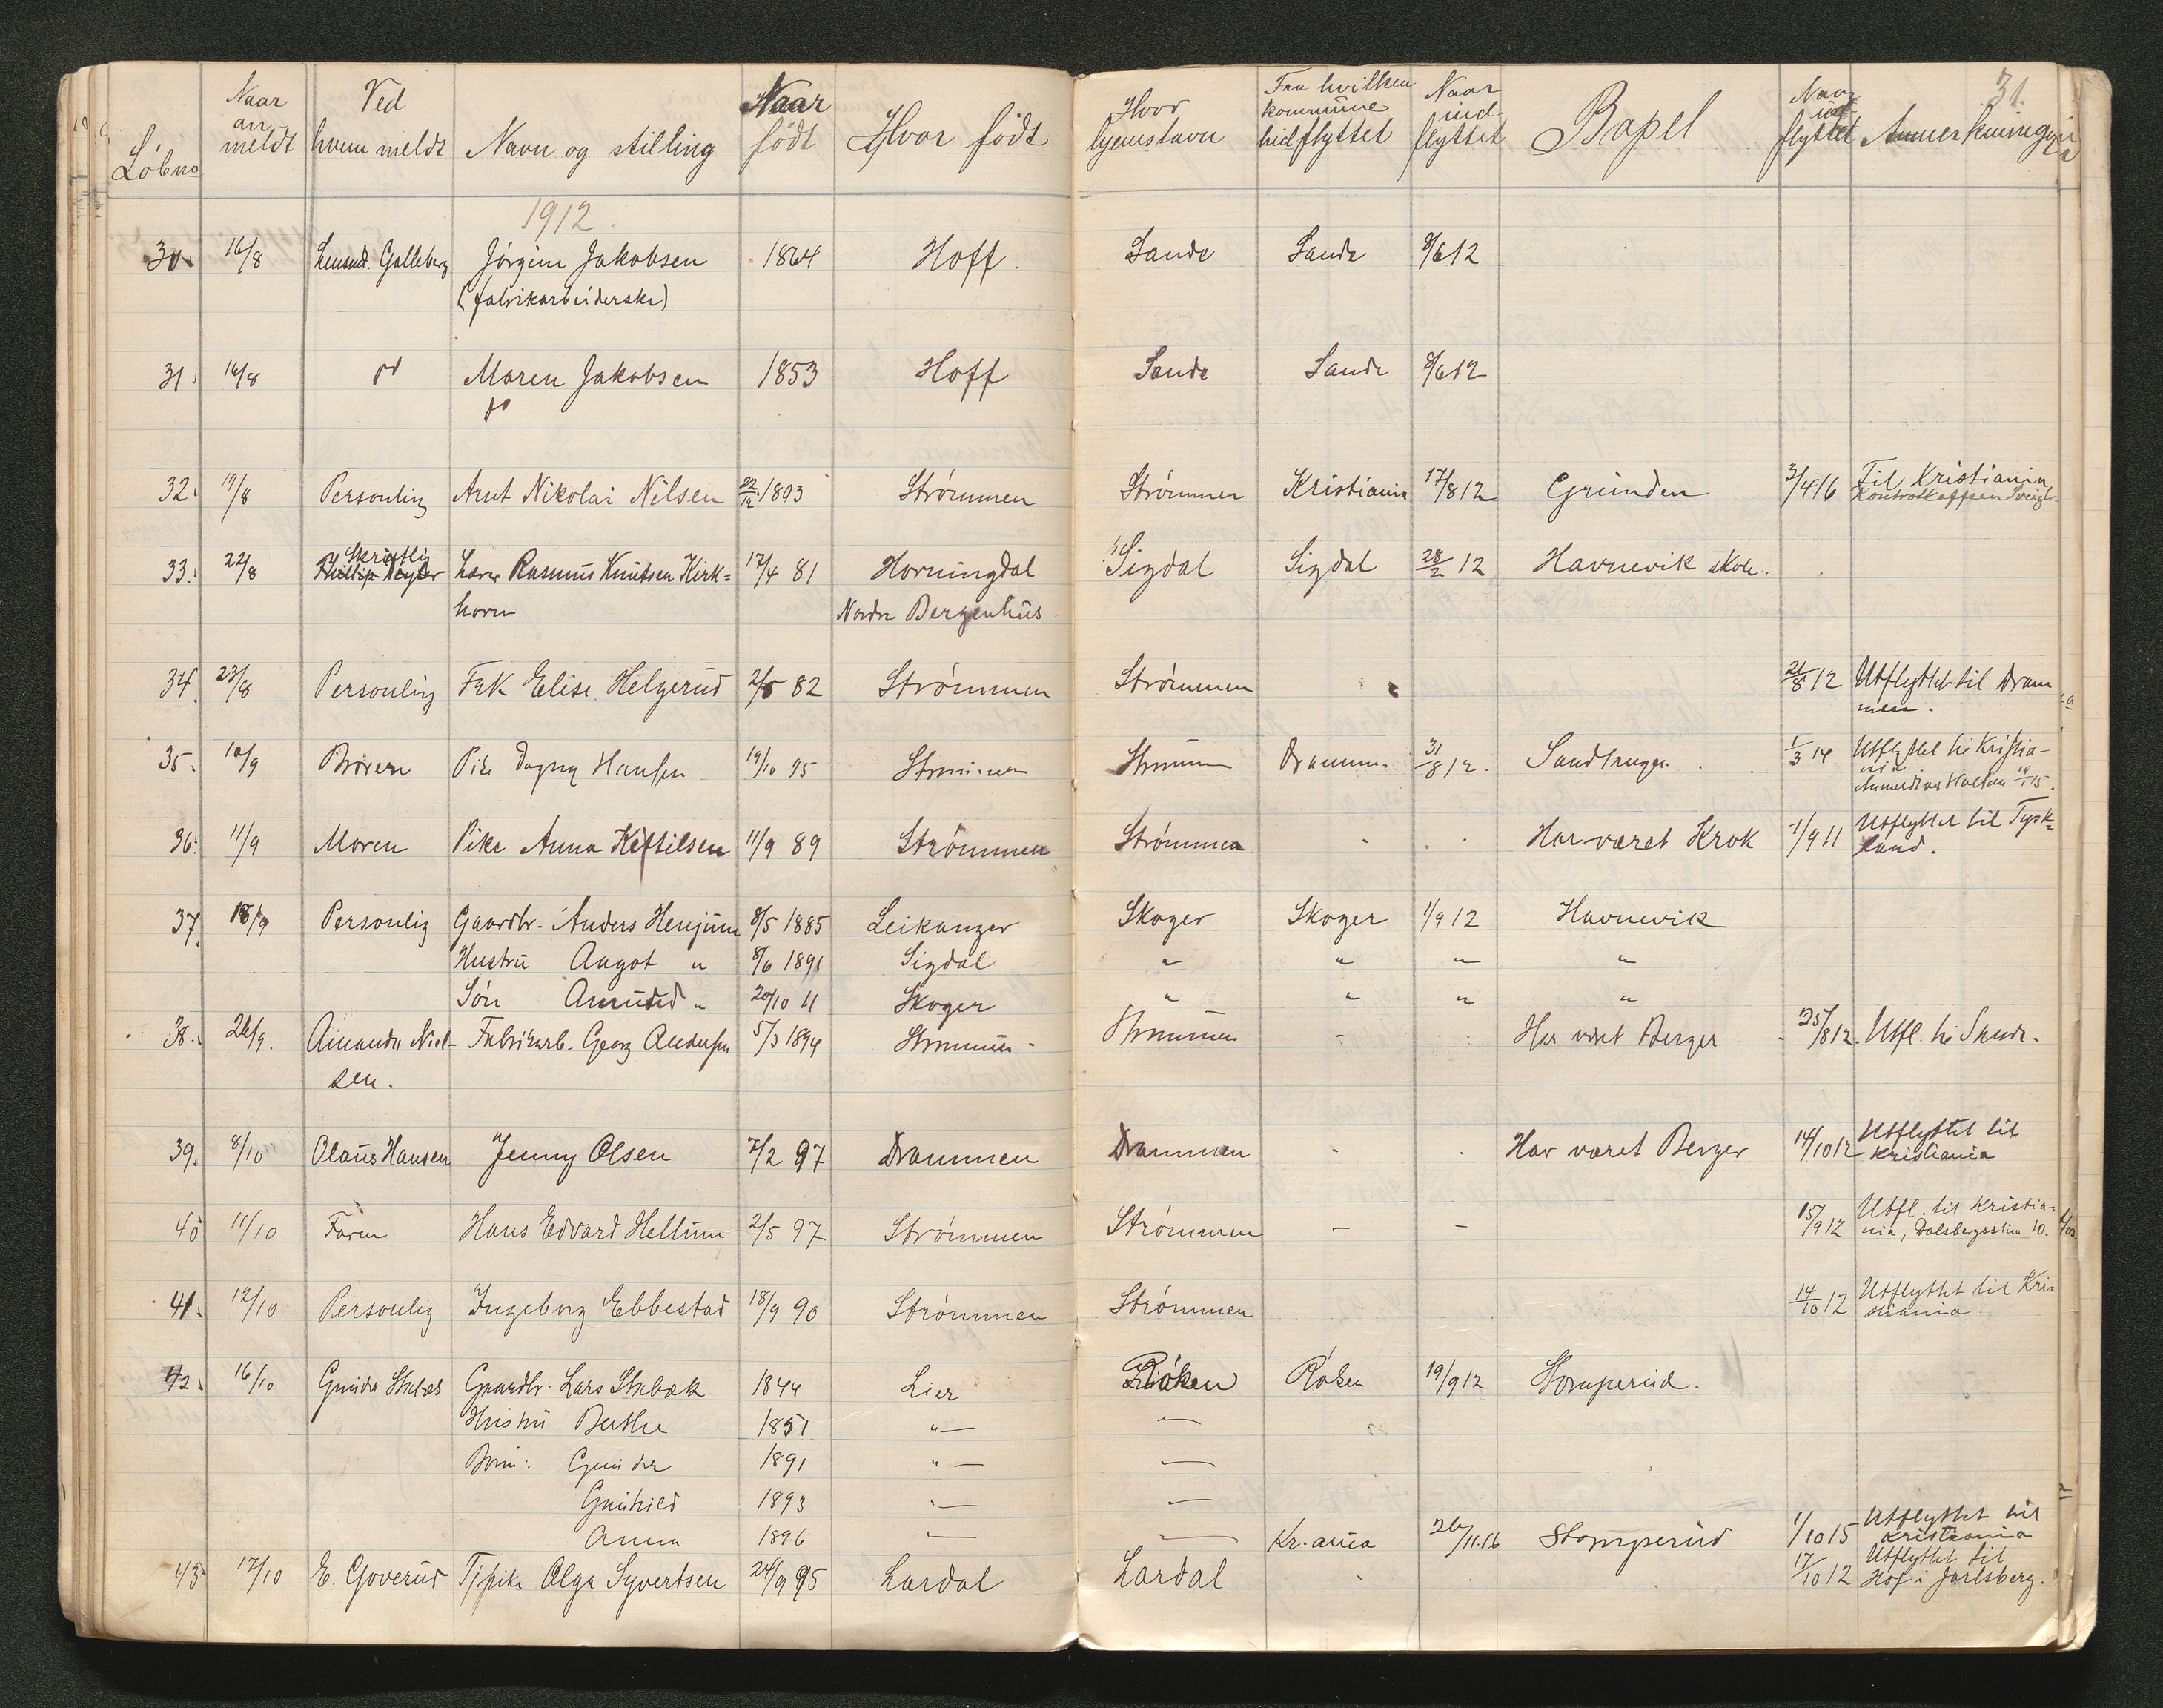 31.
Løbno Naar anmeldt Ved hvem meldt Navn og stilling Naar født Hvor født Hvor hjemstavn Fra hvilken kommune hidflyttet Naar indflyttet Bopel Naar udflyttet Anmerkninger
1912.
30. 16/8 Lensmd. Galleberg Jörgine Jakobsen 1864 Hoff. Sande Sande 8/6 12
(fabrikarbeiderske)
31. 16/8 do Maren Jakobsen 1853 Hoff Sande Sande 8/6 12
do
32. 19/8 Personlig Arnt Nikolai Nilsen 22/12 1893 Strömmen Strömmen Kristiania 17/8 12 Grunden 3/4 16 Til Kristiania
33. 22/8 Skriftlig Lærer Rasmus Knutsen Kirk= 17/4 81 Horningdal Sigdal Sigdal 28/2 12 Havnevik skole.
horn Nordre Bergenhus
34. 23/8 Personlig Frk Elise Helgerud 2/5 82 Strömmen Strömmen 21/8 12 Utflyttet til Dram
men.
35. 10/9 Broren Pike Dagny Hansen 19/10 95 Strömmen Strömmen Drammen 31/8 12. 1/3 14 Utflyttet til Kristia-
nia
36. 11/9 Moren Pike Anna Kittilsen 11/9 89 Strömmen Strömmen Har været Krok 1/9 11 Utflyttet til Tysk=
land.
37. 18/9 Personlig Gaardbr. Anders Henjum 8/5 1885 Leikanger Skoger Skoger 1/9 12 Havnevik
Hustru Aagot " 8/6 1891 Sigdal " " " "
Sön Amund " 20/10 11 Skoger " " " "
38. 26/9. Amanda Niel- Fabrikarb. Georg Andersen 5/3 1894 Strömmen Strömmen - Har været Berger 25/8 12. Utfl. til Sande.
sen.
39. 8/10 Olaus Hansen Jenny Olsen 7/2 97 Drammen Drammen Har været Berger 14/10 12 Utflyttet til
Kristiania
40 11/10 Faren Hans Edvard Hellum 2/5 97 Strömmen Strömmen - - 15/9 12 Utfl. til Kristia-
nia, Dalsbergsstien 10.
41. 12/10 Personlig Ingeborg Ebbestad 18/9 90 Strömmen Strömmen 14/10 12 Utflyttet til Kri
stiania.
42. 16/10 Gunda Stubæk Gaardbr. Lars Stubæk 1844 Lier Röken Röken 19/9 12 Stomperud.
Hustru Berthe 1851 "— —
Börn: Gunda 1891 "— —
Gunhild 1893 "— —
Anna 1896 "— — Kr.ania 26/11.16 Stomperud 1/10 15 Utflyttet til
Kristiania
43 17/10 E. Goverud Tj.pike Olga Syvertsen 24/9 95 Lardal Lardal 17/10 12 Utflyttet til
Hof i Jarlsberg.